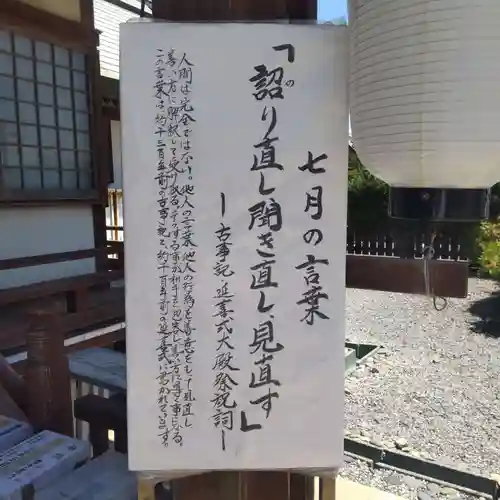 七月の言葉
「詔り直し聞き直し、見直す」
の
ー古事記 延喜式大殿祭祝詞ー
人間は完全ではない。他人の言葉、他人の行為を善意をもって見直し
善い方に解釈して受け取る。そうする事が和やかな
この言葉は、約千三百年前の古事記と、約千百年前の延喜式に書かれています。